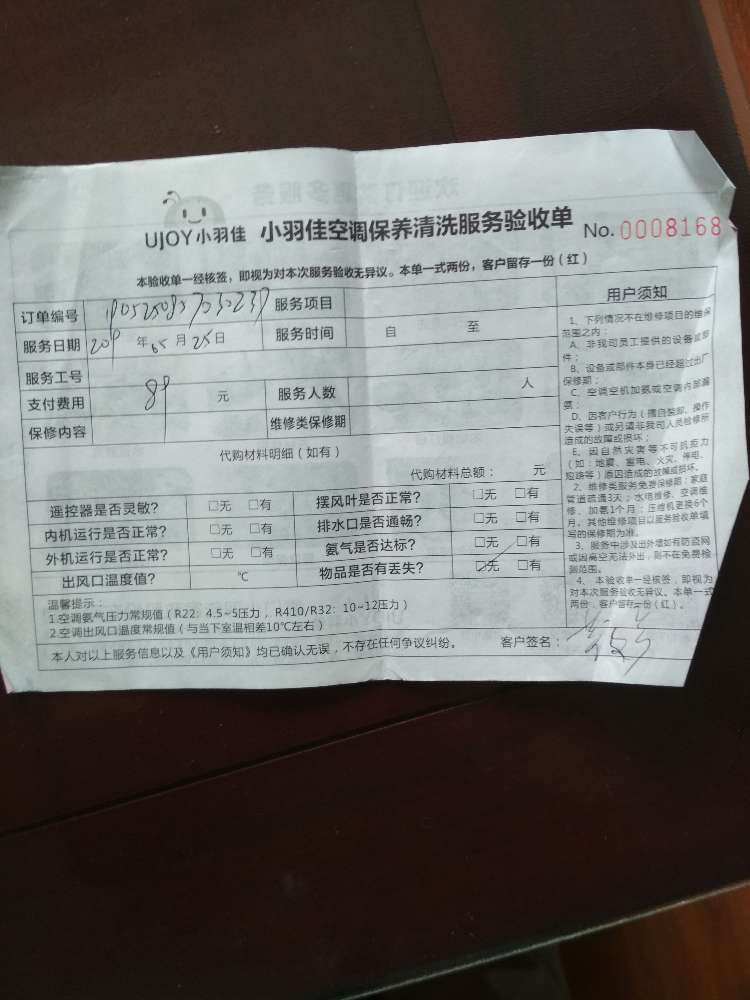 UJOY小羽佳 小羽佳空调保养清洗服务验收单 No.0008168
本验收单一经核签，即视为对本次服务验收无异议。本单一式两份，客户留存一份（红）
订单编号 服务项目
服务日期 2019 年 05 月 25 日 服务时间 自 至
服务工号
支付费用 89 元 服务人数 人
保修内容 维修类保修期
代购材料明细（如有）
代购材料总额： 元
遥控器是否灵敏？ □无 □有 摆风叶是否正常？ □无 □有
内机运行是否正常？ □无 □有 排水口是否通畅？ □无 □有
外机运行是否正常？ □无 □有 氨气是否达标？ □无 □有
出风口温度值？ ℃ 物品是否有丢失？ ☑无 □有
温馨提示：
1.空调氨气压力常规值（R22：4.5~5压力，R410/R32：10~12压力）
2.空调出风口温度常规值（与当下室温相差10℃左右）
本人对以上服务信息以及《用户须知》均已确认无误，不存在任何争议纠纷。 客户签名：
用户须知
1、下列情况不在维修项目的维保
范围之内：
A、非我司员工提供的设备或部
件；
B、设备或部件本身已经超过出厂
保修期；
C、空调空机加氨或空调内部漏
氨；
D、因客户行为（擅自装卸、操作
失误等）或另请非我司人员检修所
造成的故障或损坏；
E、因自然灾害等不可抗拒力
（如：地震、雷电、火灾、停电、
短路等）原因造成的故障或损坏。
2、维修类服务免费保修期：家庭
管道疏通3天；水暖维修、空调维
修、加氨1个月；压缩机更换6个
月。其他维修项目以服务验收单填
写的保修期为准。
3、服务中涉及出外墙如有防盗网
或因高空无法外出，则不在免费检
测范围。
4、本验收单一经核签，即视为
对本次服务验收无异议。本单一式
两份，客户留存一份（红）。